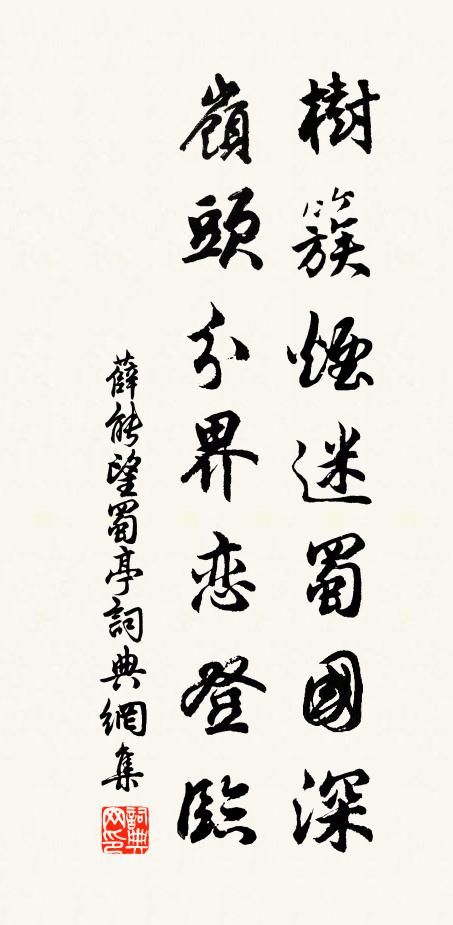 樹簇煙迷蜀國深
嶺頭分界恋登臨
薛能望蜀亭詞典網集
詞典網印